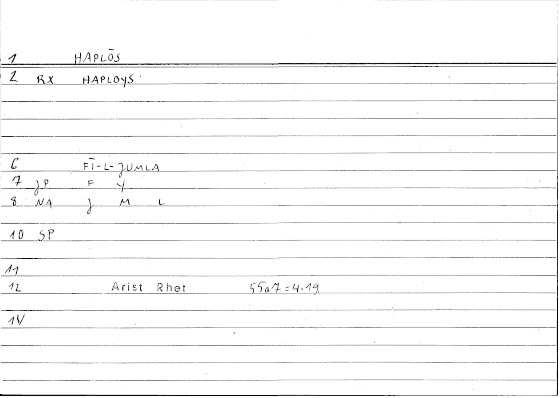 1 HAPLŌS
2 RX HAPLOYS
6 FĪ-L-JUMLA
7 JP F Y
8 NA J M L
10 SP
11
12 Arist Rhet 55a7=4.19
14